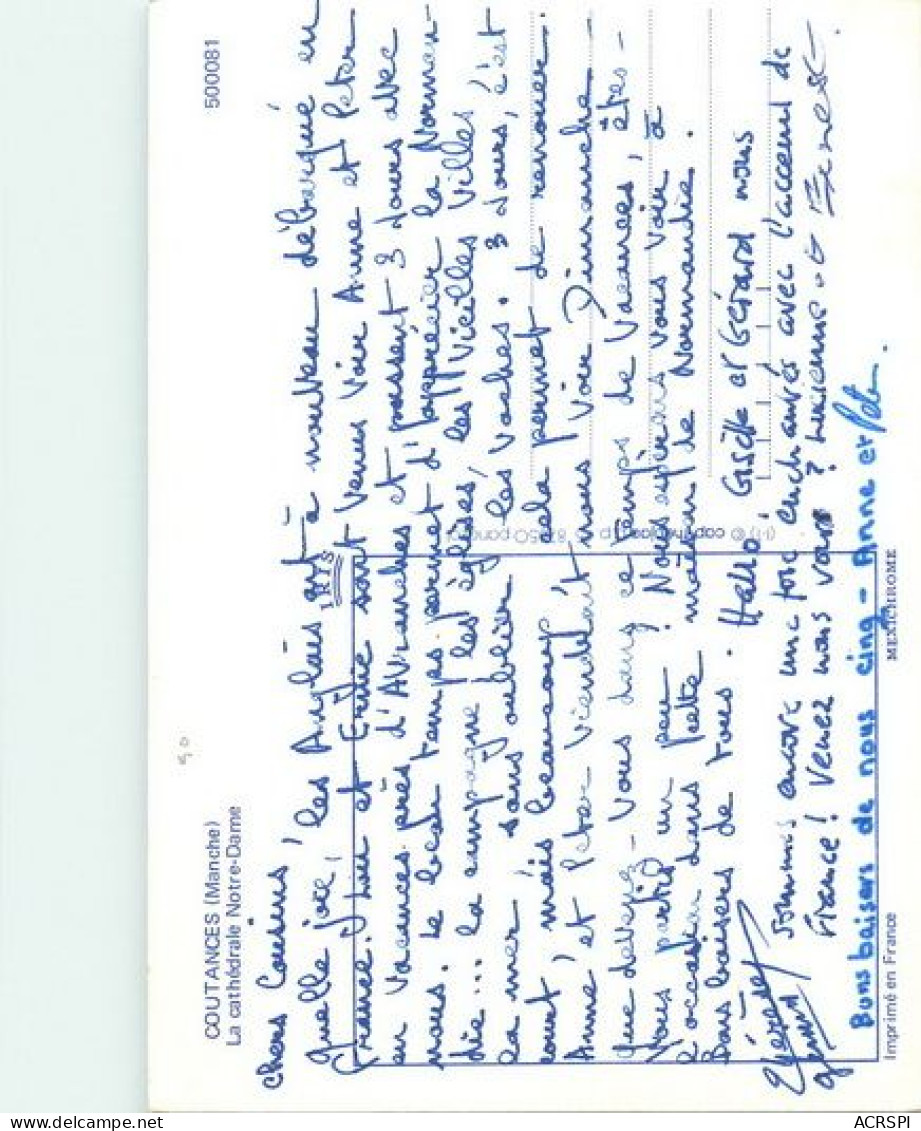 COUTANCES (Manche)
La cathédrale Notre-Dame
500081
IRIS
Chers Cousins,
quelle joie, les Anglais ont à nouveau débarqué en
France. et Emilie sont venus voir Anne et Peter
en vacances près d'Avranches et passent 3 jours avec
nous. le beau temps permet d'apprécier la Norman-
die... la campagne, les églises, les vieilles villes,
la mer sans oublier les vaches. 3 jours, c'est
court, mais beaucoup cela permet de renouer.
Anne et Peter viendront nous voir Dimanche
Que devenez-vous dans ce temps de Vacances, êtes-
Vous partis un peu ? Nous espérons vous voir à
l'occasion dans Petite maison de Normandie.
Bons baisers de tous. Hello! Gisèle et Gérard nous
sommes encore une fois enchantés avec l'accueil de
France! Venez nous voir?
Bons baisers de nous cinq - Anne et Peter.
Imprimé en France
MEXICHROME